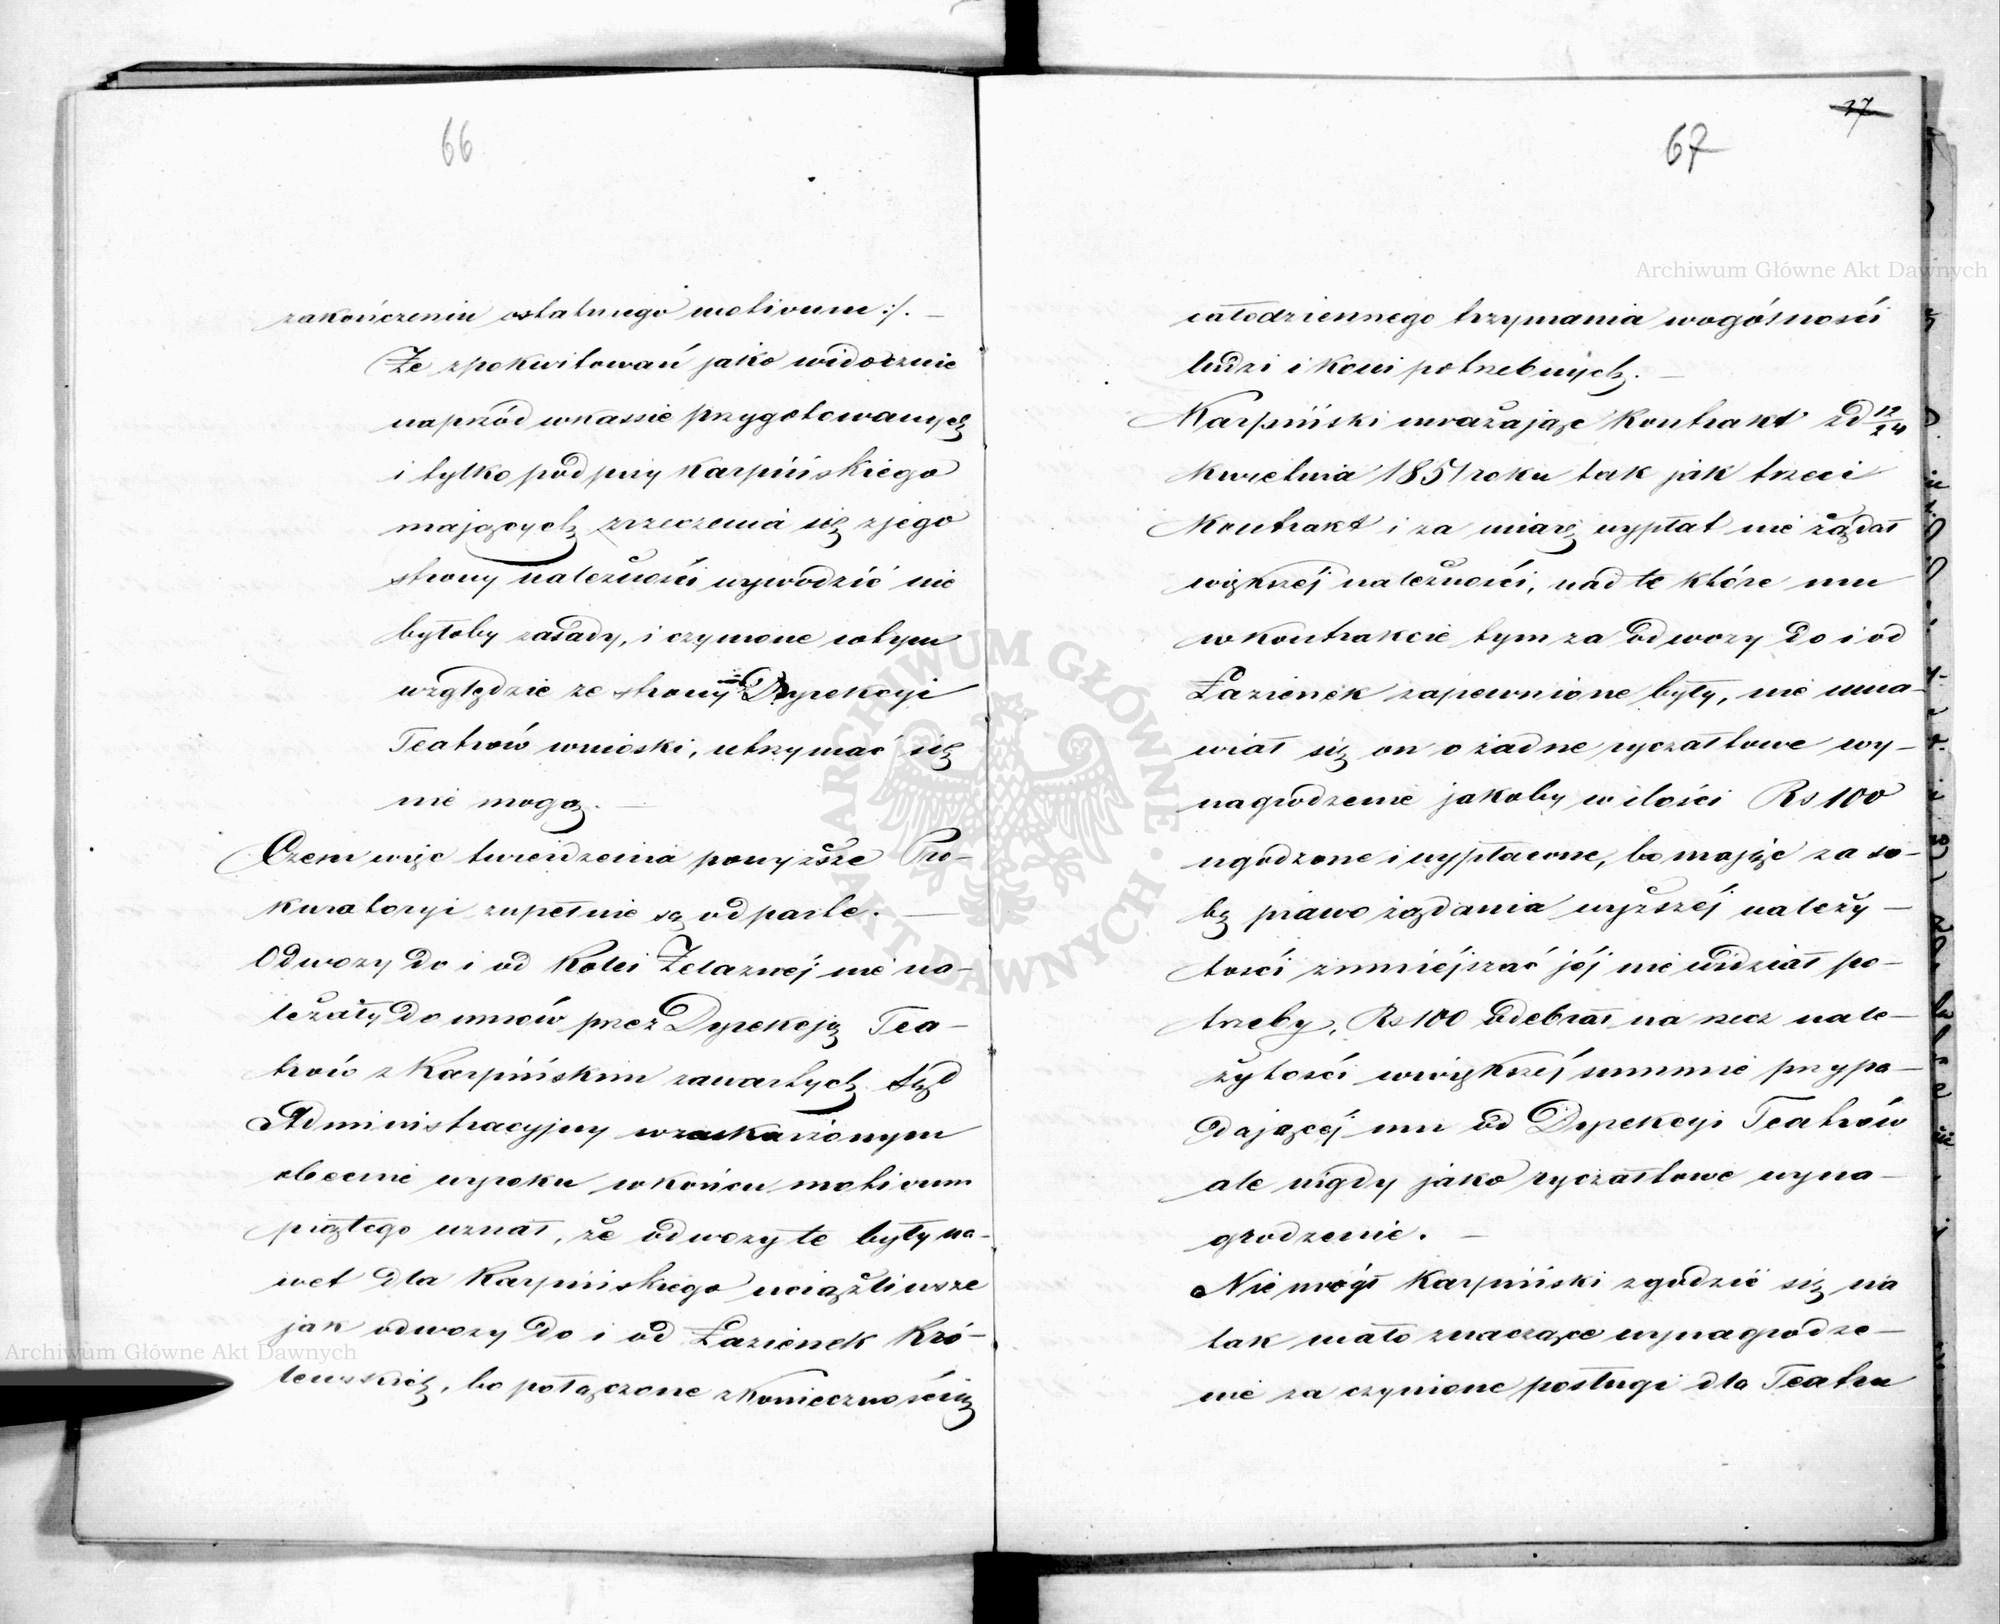 66
zakończeniu ostatniego motivum :/. —
Że zpokwitowań jako widocznie
naprzód wkassie przygotowanych
i tylko podpisy Karpińskiego
mających zrzeczenia się zjego
strony należności wywodzić nie
byłoby zasady, i czynione wtym
względzie ze strony Dyrekcyi
Teatrów wnioski, utrzymać się
nie mogą. —
Czem więc twierdzenia powyższe Pro-
kuratoryi zupełnie są odparte. —
Odwozy do i od Kolei Żelaznej nie na-
leżały do umów przez Dyrekcją Tea-
trów z Karpińskim zawartych Sąd
Administracyjny wzaskarżonym
obecnie wyroku wkońcu motivum
piątego uznał, że odwozy te były na-
wet dla Karpińskiego uciążliwsze
jak odwozy do i od Łazienek Kró-
lewskich, bo połączone zkoniecznością
37
67
całodziennego trzymania wogólności
ludzi i koni potrzebnych. —
Karpiński uważając Kontrakt zd 12/24
Kwietnia 1851 roku tak jak trzeci
Kontrakt i za miarę wypłat nie żądał
większéj należności, nad te które mu
wkontrakcie tym za odwozy do i od
Łazienek zapewnione były, nie uma-
wiał się on o żadne ryczałtowe wy-
nagrodzenie jakoby w ilości Rs 100
ugodzone i wypłacone, bo mając za so-
bą prawo żądania wyższéj należy-
tości zmniéjszać jéj nie widział po-
trzeby, Rs 100 odebrał na rzecz nale-
żytości wwiększéj summie przypa-
dającéj mu od Dyrekcyi Teatrów
ale nigdy jako ryczałtowe wyna-
grodzenie. —
Nie mógł Karpiński zgodzić się na
tak mało znaczące wynagrodze-
nie za czynione posługi dla Teatru
Archiwum Główne Akt Dawnych
Archiwum Główne Akt Dawnych
ARCHIWUM GŁÓWNE AKT DAWNYCH